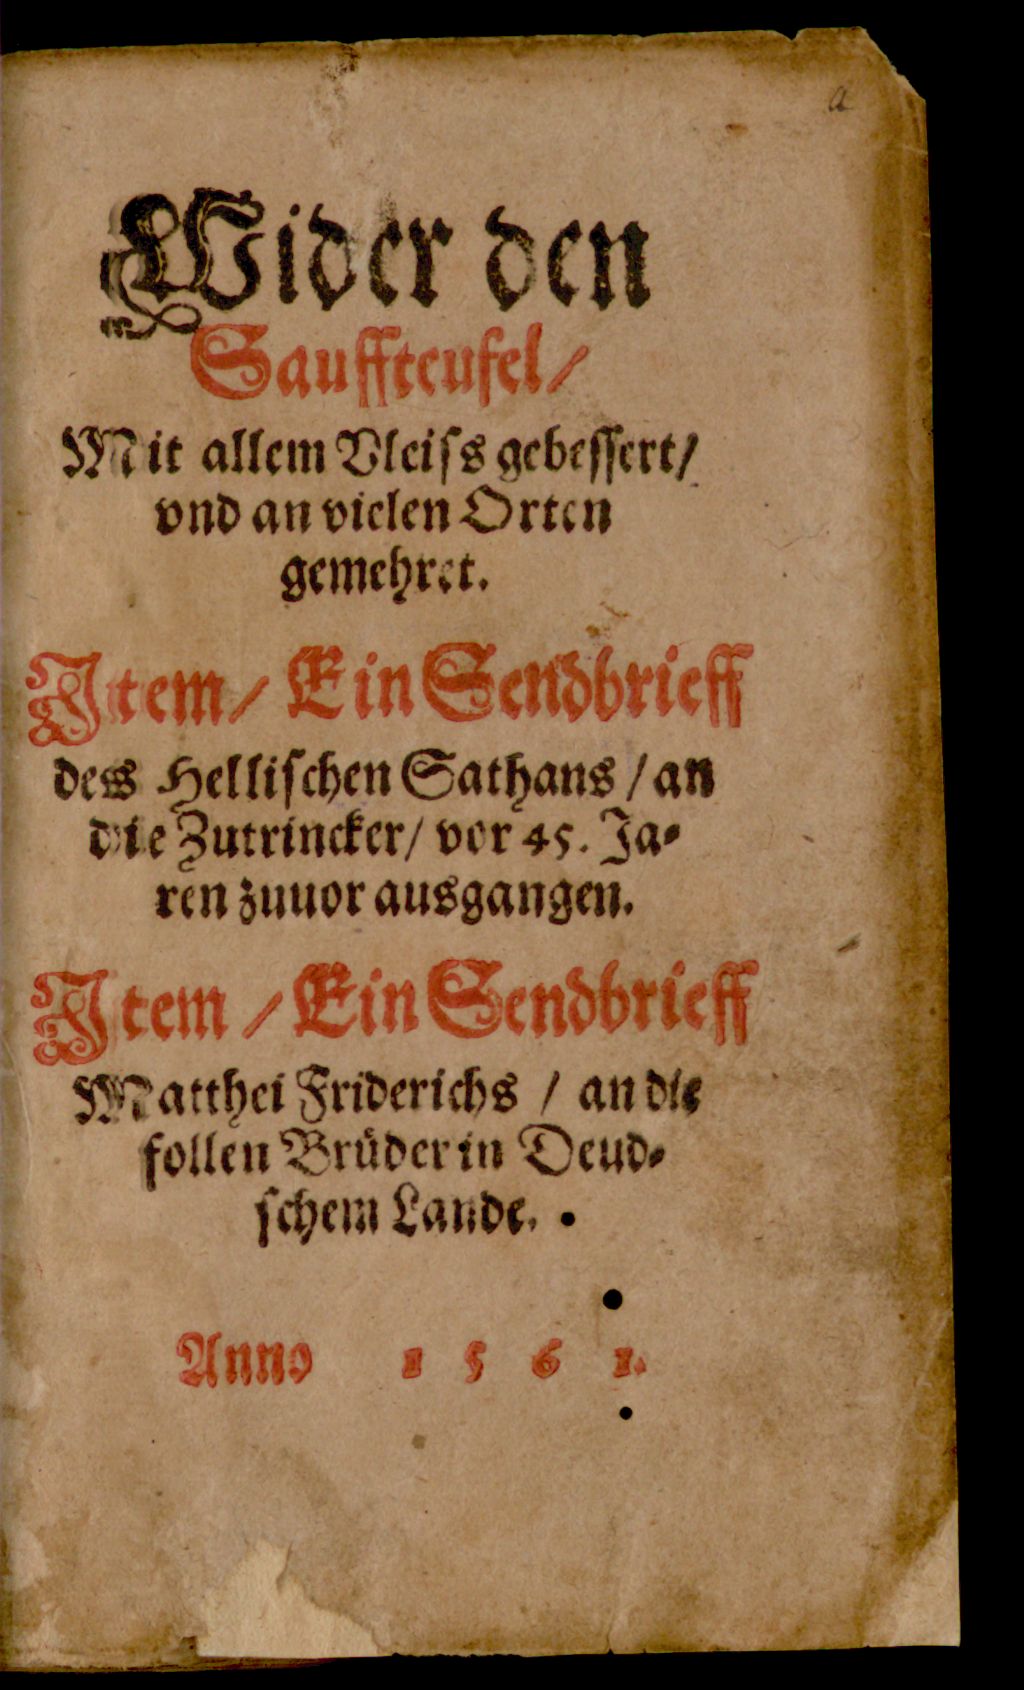 a
Wider den
Sauffteufel/
Mit allem Vleiss gebessert/
vnd an vielen Orten
gemehret.
Item/ Ein Sendbrieff
dess Hellischen Sathans / an
die Zutrincker/ vor 45. Ja-
ren zuuor ausgangen.
Item / Ein Sendbrieff
Matthei Friderichs / an die
follen Brüder in Deud-
schem Lande.
Anno 1 5 6 1.